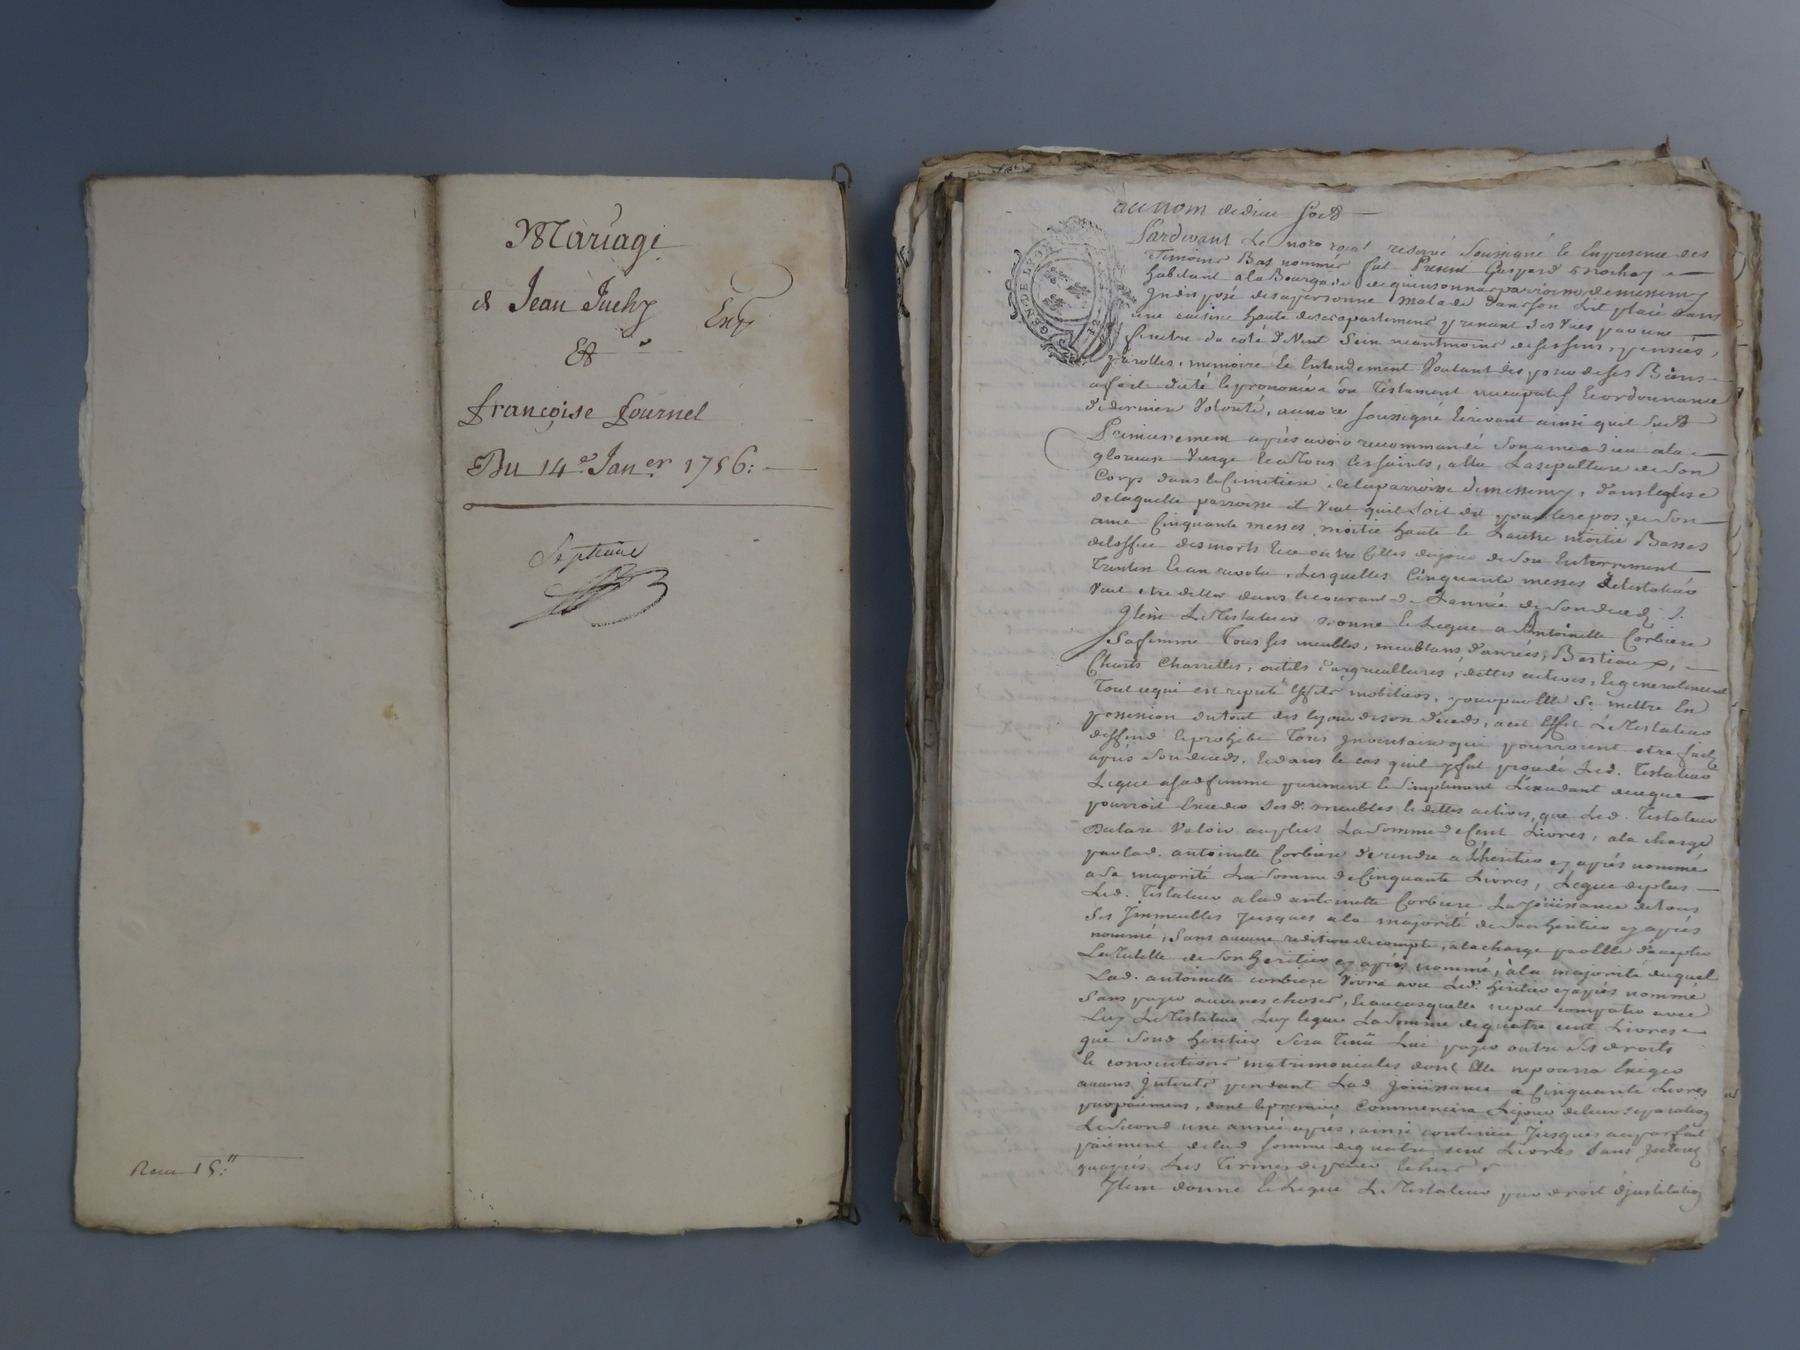 Mariage
de Jean Juchy Exp
Et
françoise fournel
Du 14e Janer 1756:
Septieme
Recu 15:
GEN DE LYON
au nom de dieu soit
Pardevant Le nore royal reservé soussigné Et En presence des
Temoins Bas nommés fut Present Gaspard
habitant a la Bourgade de quinsonnas parroisse de messimy
Indisposé de sa personne malade dans son Lit placé dans
une cuisine haute de ses apartements prenant ses vues par une
fenetre du coté d'Vent sain neantmoins de ses sens, pensées,
parolles, memoire Et Entendement Voulant disposer de ses Biens
a fait dicté Et prononcé son Testament nuncupatif Et ordonnance
de derniere Volonté, au nore soussigné Ecrivant ainsi quil suit
Premierement après avoir recommandé son ame a dieu a la
glorieuse Vierge Et a Tous les saints, a Elu La sepulture de son
Corps dans le Cimetiere de la parroisse de messimy, dans leglise
de laquelle parroisse il Veut quil soit dit pour le repos de son
ame Cinquante messes moitié haute Et Lautre moitié Basses
de loffice des morts Et ce outre Celles du jour de son Enterrement
Trentin Et an revolu, Lesquelles Cinquante messes le testateur
Veut etre dittes dans le courant de Lannée de son deced
Item Le Testateur donne Et Legue a Antoinette Corbiere
Sa femme Tous ses meubles, meublans danrées, Bestiaux,
Chars Charrettes, outils d'agricultures, dettes actives, Et generalement
Tout ce qui est reputé Effets mobiliers, pour par Elle se mettre En
possession du tout des le jour de son deceds, a cet Effet Le Testateur
deffend Et prohibe Tous Inventaire qui pourroient etre faits
après son deceds, Et dans le cas quil y fut procedé Led. Testateur
Legue a sad femme purement Et simplement Lexcedant de ce que
pourroit Exceder sesd. meubles Et dettes actives, que Led. Testateur
Declare Valoir au plus La somme de Cent Livres, a la charge
par lad. antoinette Corbiere de rendre a Lheritier cy après nommé
a sa majorité La somme de Cinquante Livres, Legue de plus
Led. Testateur a lad antoinette Corbiere La Joüissance de Tous
Ses Immeubles Jusques a la majorité de son heritier cy après
nommé, Sans aucune redition de compte, a la charge par Elle d'accepter
La Tutelle de son heritier cy après nommé, à la majorité duquel
Lad. antoinette corbiere Vivra avec Led. heritier cy après nommé
Sans payer aucunes choses, Et au cas quelle ne put compatir avec
Luy Le Testateur Luy legue La somme de quatre cent Livres
que Sond heritier Sera Tenü Lui payer outre Ses droits
Et conventions matrimoniales dont Elle ne poura Exiger
aucuns Interets pendant Lad Joüissance a Cinquante Livres
par paiement, dont le premier Commencera Le jour de leur separation
Le Second une année après, ainsi continüé Jusques au parfait
paiement de lad somme de quatre cent Livres Sans Interets
quapres Les Termes de payer Echus
Item donne Et Legue Le Testateur par droit d'institution